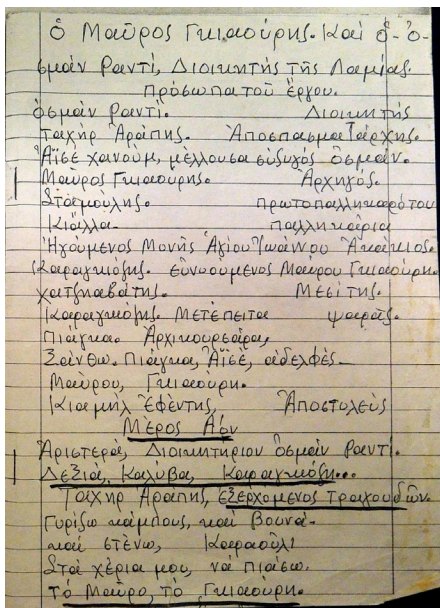 ὁ Μαῦρος Γκιαούρης. Καί ὁ Ὀ-
σμάν Ραντί, Διοικητής τῆς Λαμίας.
Πρόσωπα τοῦ ἔργου.
Ὀσμάν Ραντί. Διοικητής
Ταχήρ Ἀράπης. Ἀποσπασματάρχης.
Ἀϊσέ χανούμ, μέλλουσα σύζυγός Ὀσμάν.
Μαῦρος Γκιαούρης. Ἀρχηγός.
Σταμούλης. πρωτοπαλληκαρότου
Κιάλλα. παλληκάρια
Ἡγούμενος Μονῆς Ἁγίου Ἰωάννου Ἀκάκιος.
Καραγκιόζης. εὐνοούμενος Μαύρου Γκιαούρη.
χατζηαβάτης. Μεσίτης.
Καραγκιόζης. Μετέπειτα ψαράς.
Πιάγκα. Ἀρχικουρσάρα,
Ξάνθω. Πιάγκα, Ἀϊσέ, ἀδελφές
Μαύρου, Γκιαούρη.
Κιαμήλ Ἐφέντης, Ἀποστολεύς
Μέρος Αον
Ἀριστερά, Διοικητήριον Ὀσμάν Ραντί.
Δεξιά, Καλύβα, Καραγκιόζη...
Ταχήρ Ἀράπης, ἐξερχόμενος τραγουδῶν.
Γυρίζω κάμπους, καί βουνά.
καί στένω, Καραούλι
Στά χέρια μου, νά πιάσω.
τό Μαῦρο, τό Γκιαούρη.